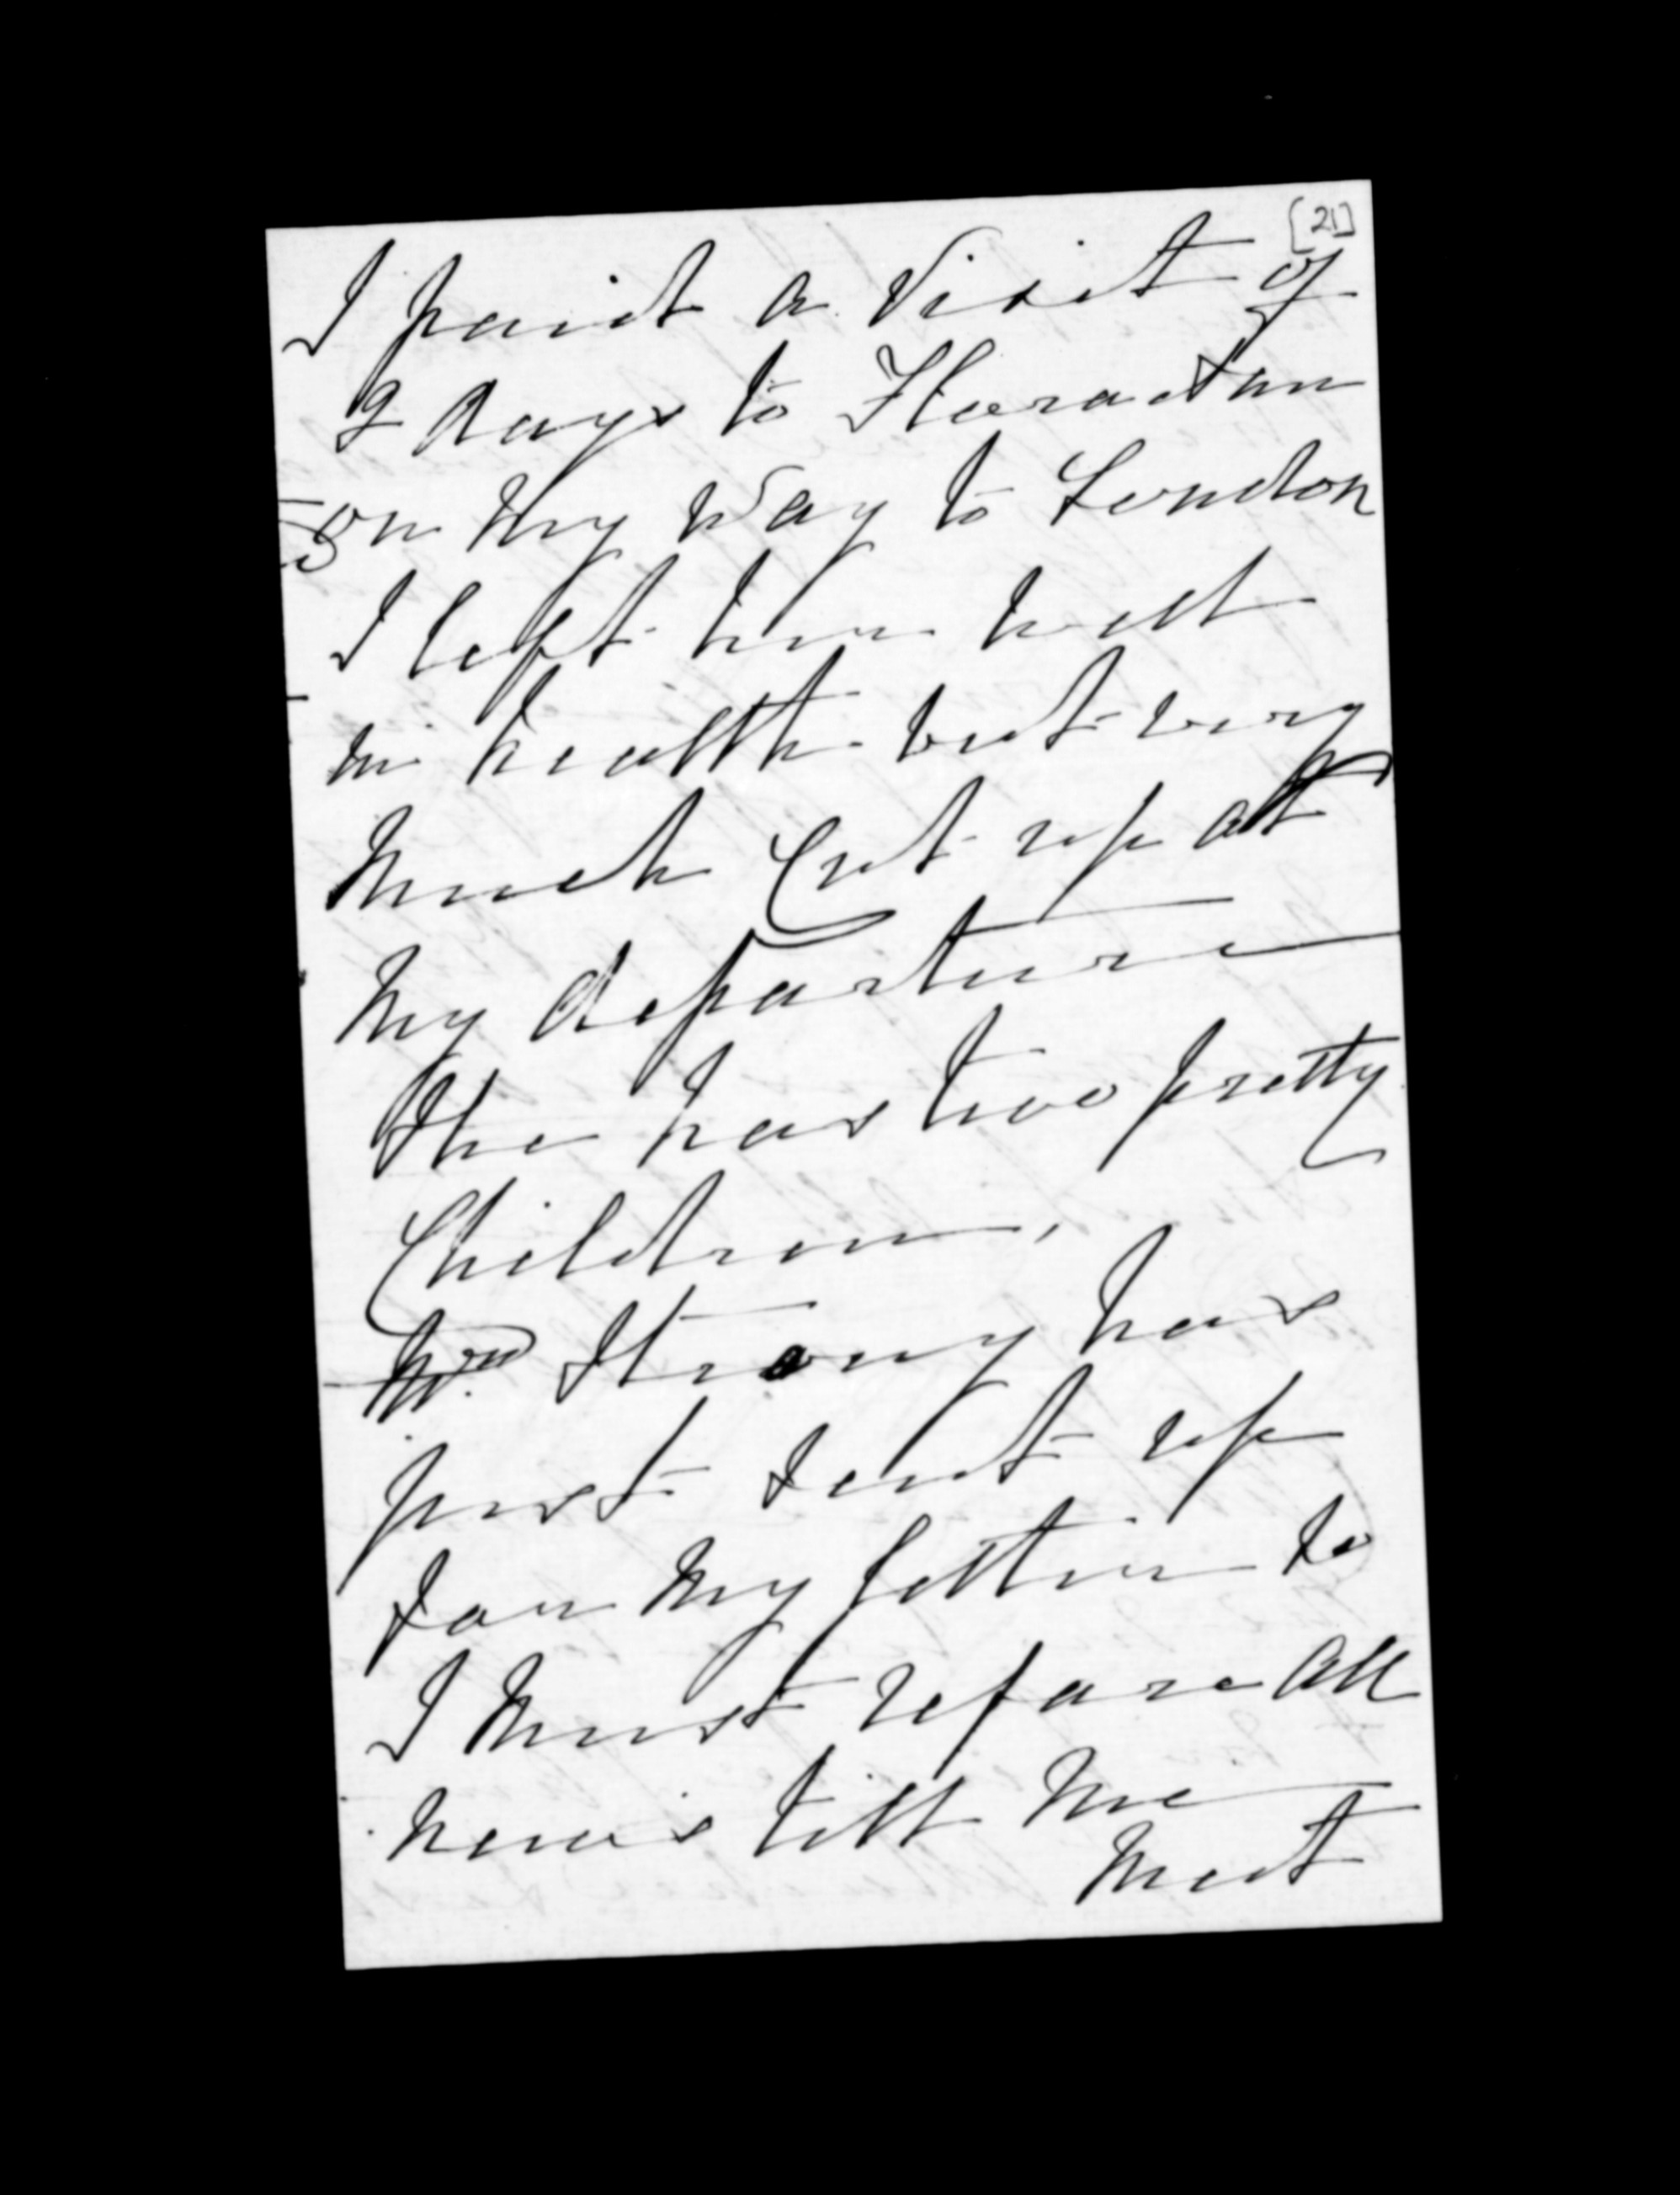 [21]
I paid a visit of
2 days to
on my way to London
I left her well
in health but very
much cut up at
my departure
She has two pretty
Children,
Mrs Strong has
just sent up
for my letter so
I must reserve all
news till we
meet